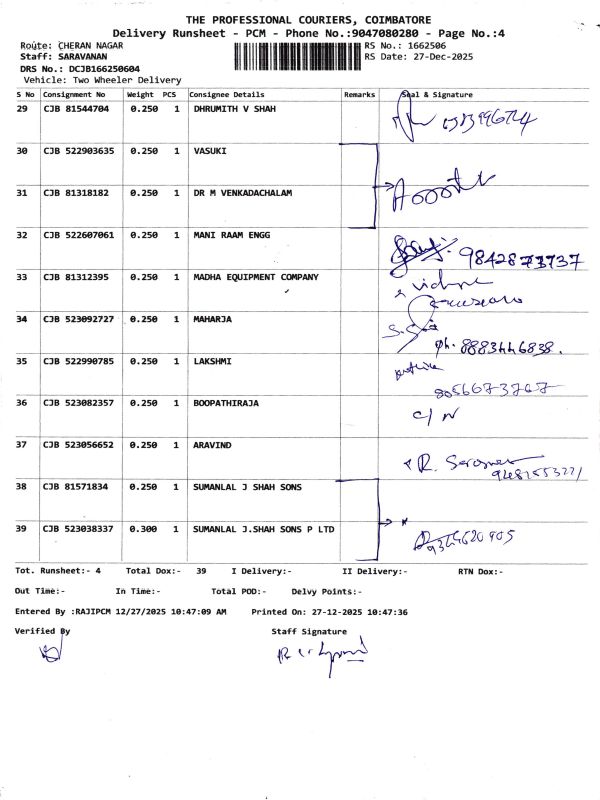 THE PROFESSIONAL COURIERS, COIMBATORE
Delivery Runsheet - PCM - Phone No.:9047080280 - Page No.:4
Route: CHERAN NAGAR RS No.: 1662506
Staff: SARAVANAN RS Date: 27-Dec-2025
DRS No.: DCJB166250604
Vehicle: Two Wheeler Delivery
S No Consignment No Weight PCS Consignee Details Remarks Seal & Signature
29 CJB 81544704 0.250 1 DHRUMITH V SHAH
30 CJB 522903635 0.250 1 VASUKI
31 CJB 81318182 0.250 1 DR M VENKADACHALAM
32 CJB 522607061 0.250 1 MANI RAAM ENGG 9842873737
33 CJB 81312395 0.250 1 MADHA EQUIPMENT COMPANY
34 CJB 523092727 0.250 1 MAHARJA ph. 8883446838.
35 CJB 522990785 0.250 1 LAKSHMI 8056673767
36 CJB 523082357 0.250 1 BOOPATHIRAJA C/N
37 CJB 523056652 0.250 1 ARAVIND
38 CJB 81571834 0.250 1 SUMANLAL J SHAH SONS
39 CJB 523038337 0.300 1 SUMANLAL J.SHAH SONS P LTD
Tot. Runsheet:- 4 Total Dox:- 39 I Delivery:- II Delivery:- RTN Dox:-
Out Time:- In Time:- Total POD:- Delvy Points:-
Entered By :RAJIPCM 12/27/2025 10:47:09 AM Printed On: 27-12-2025 10:47:36
Verified By Staff Signature